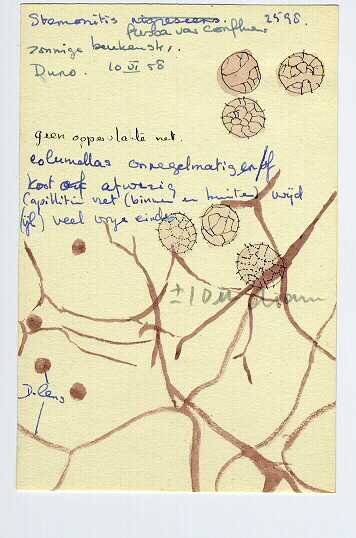 Stemonitis nigrescens 2598.
fusca var confluens
zonnige beukenstr.
Duno. 10 VI 58
geen oppervlakte net.
columellas onregelmatig en/of
kort of afwezig
(capillitium net (binnen en buiten) wijd
ijl) veel vrije einden
± 10 m diam
D. lens